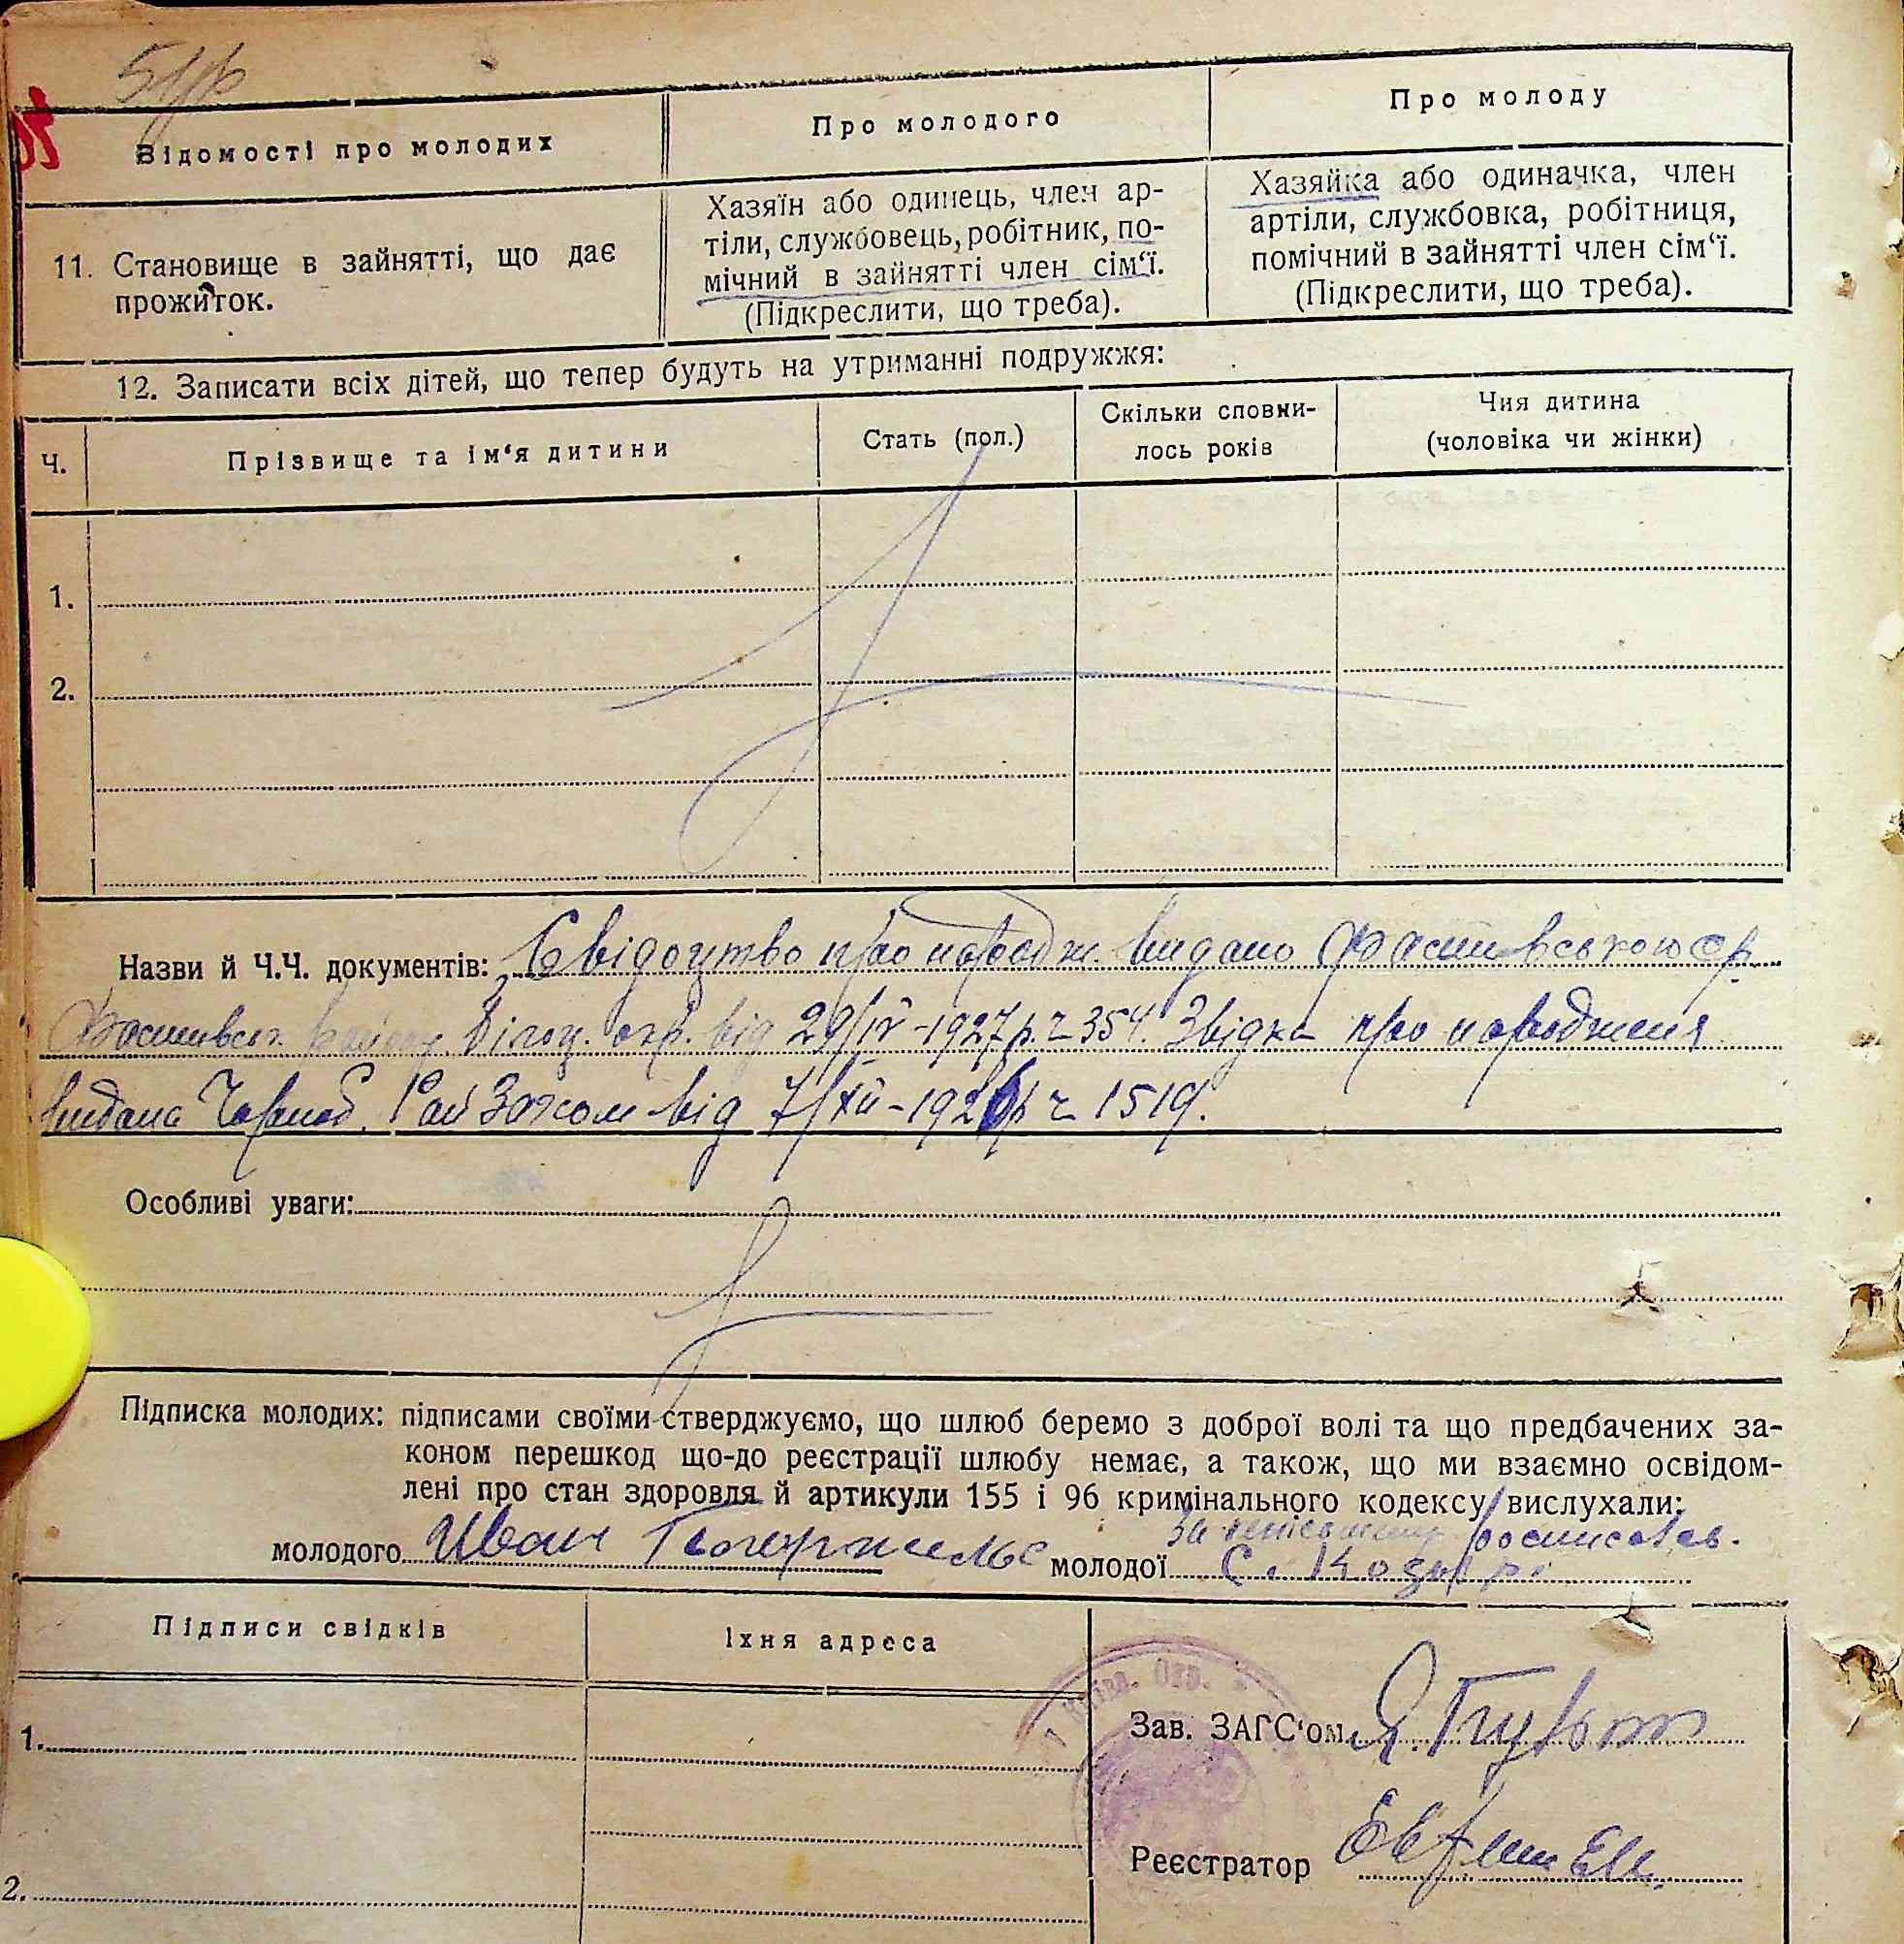 Відомості про молодих
Про молодого
Про молоду
11. Становище в зайнятті, що дає
прожиток.
Хазяїн або одинець, член ар-
тіли, службовець, робітник, по-
мічний в зайнятті член сім‘ї.
(Підкреслити, що треба).
Хазяйка або одиначка, член
артіли, службовка, робітниця,
помічний в зайнятті член сім‘ї.
(Підкреслити, що треба).
12. Записати всіх дітей, що тепер будуть на утриманні подружжя:
Ч.
Прізвище та ім‘я дитини
Стать (пол.)
Скільки сповни-
лось років
Чия дитина
(чоловіка чи жінки)
1.
2.
Назви й Ч.Ч. документів: Свідоцтво про народж. видано Фастівською с/р.
Фастівськ. району Білоц. окр. від 29/IV-1927 р. ч 354. Звідка про народження
видана Чорноб. Рай Загсом від 7/XII-1926 р ч 1519.
Особливі уваги:
Підписка молодих: підписами своїми стверджуємо, що шлюб беремо з доброї волі та що предбачених за-
коном перешкод що-до реєстрації шлюбу немає, а також, що ми взаємно освідом-
лені про стан здоровля й артикули 155 і 96 кримінального кодексу вислухали:
молодого Иван
молодої
Підписи свідків
Їхня адреса
1.
2.
Зав. ЗАГС‘ом
Реєстратор